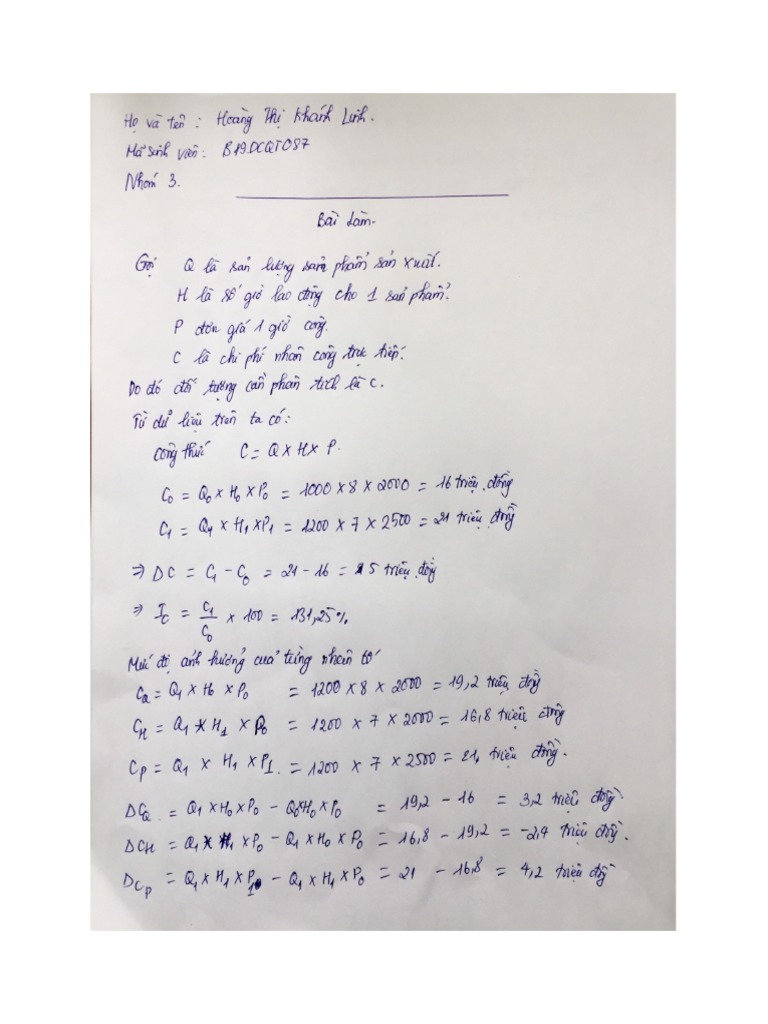 Họ và tên : Hoàng Thị Khánh Linh.
Mã sinh viên : B19DCQT087
Nhóm 3.
Bài làm.
Gọi Q là sản lượng sản phẩm sản xuất.
H là số giờ lao động cho 1 sản phẩm.
P đơn giá 1 giờ công.
C là chi phí nhân công trực tiếp.
Do đó đối tượng cần phân tích là C.
Từ dữ liệu trên ta có:
Công thức C = Q x H x P.
C₀ = Q₀ x H₀ x P₀ = 1000 x 8 x 2000 = 16 triệu đồng
C₁ = Q₁ x H₁ x P₁ = 1200 x 7 x 2500 = 21 triệu đồng
⇒ DC = C₁ - C₀ = 21 - 16 = 5 triệu đồng
⇒ I_C = C₁/C₀ x 100 = 131,25%
Mức độ ảnh hưởng của từng nhân tố
C_Q = Q₁ x H₀ x P₀ = 1200 x 8 x 2000 = 19,2 triệu đồng
C_H = Q₁ x H₁ x P₀ = 1200 x 7 x 2000 = 16,8 triệu đồng
C_P = Q₁ x H₁ x P₁ = 1200 x 7 x 2500 = 21, triệu đồng.
DC_Q = Q₁ x H₀ x P₀ - Q₀ x H₀ x P₀ = 19,2 - 16 = 3,2 triệu đồng
DC_H = Q₁ x H₁ x P₀ - Q₁ x H₀ x P₀ = 16,8 - 19,2 = -2,4 triệu đồng.
DC_P = Q₁ x H₁ x P₁ - Q₁ x H₁ x P₀ = 21 - 16,8 = 4,2 triệu đồng